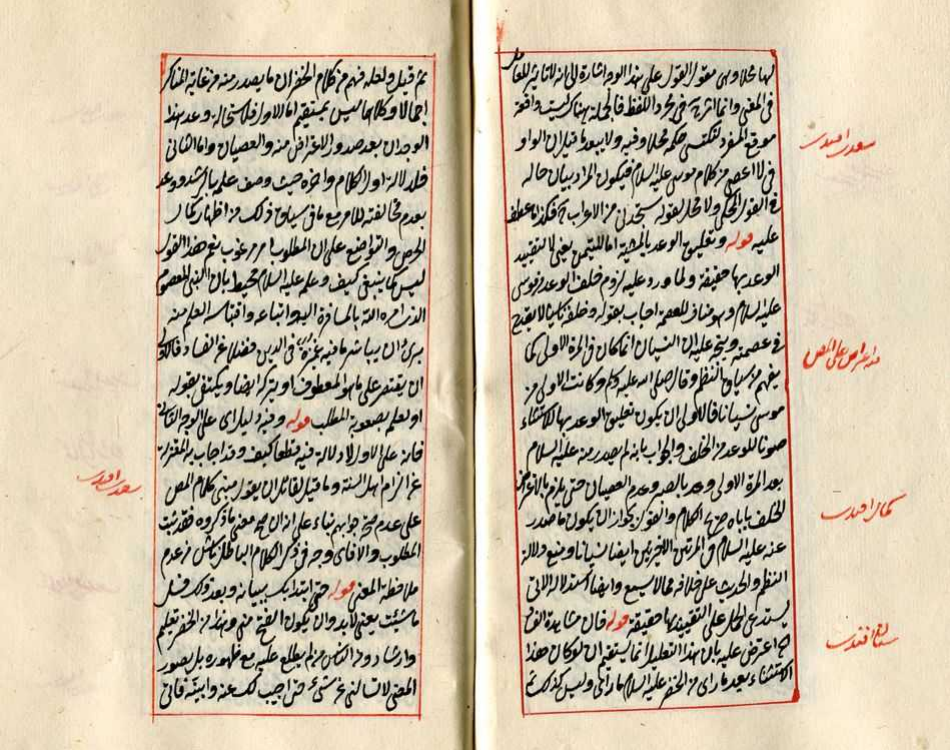 لها محلا وهي مقول القول على هذا الوجه اشارة الى انه لا تأثير للعامل
في المعنى وانما اثره في مجرد اللفظ فالجملة هنا ليست واقعة
موقع المفرد لتكتسي حكم محلا وفيه ولا يبعد ان الواو
في لا اعصي من كلام موسى عليه السلام فيكون المراد بيان حاله
في القول المحكي ولا محل لقوله ستجدني من الاعراب فكذا ما عطف
عليه قوله وتعليق الوعد بالمشية اما للتيمن يعني لا لتقييد
الوعد بها حقيقة ولما ورد عليه لزوم خلف الوعد من موسى
عليه السلام وهو مناف للعصمة اجاب بقوله وخلفه ناسيا لا يقدح
في عصمته ويتجه عليه ان النسيان انما كان في المرة الاولى كما
يفهم من سياق النظم وقال صلى الله عليه وسلم وكانت الاولى من
موسى نسيانا فالاولى ان يكون تعليق الوعد بها للاستثناء
صونا للوعد من الخلف والجواب بانه لم يصدر منه عليه السلام
بعد المرة الاولى وعد بالصبر وعدم العصيان حتى يلزم
الخلف يأباه الكلام والقول بجواز ان يكون ما صدر
عنه عليه السلام في المرتين الاخيرتين ايضا نسيانا ويمنع دلالة
النظم والحديث على خلافه مما لا يسمع وايضا استدلاله الاتي
يستدعي الحمل على التقييد بها حقيقة قوله فان مشاهدة
اعترض عليه بان هذا التعليل انما يستقيم ان لو كان هذا
الاستثناء بعد ما رأى من الخضر عليه السلام ما رأى وليس كذلك
سعدى افندى
هذا اعتراض على المص
كمال افندى
سنان افندى
ثم قيل ولعله فهم من كلام الخضر ان ما يصدر منه من غاية المناكر
اجمالا وكلاهما ليس بمستقيم اما الاول فلاستحالة وعد هذا
الوجدان بعد صدور الاعتراض منه والعصيان واما الثاني
فلدلالة اول الكلام واخره حيث وصف علمه بالرشد ووعد
بعدم مخالفته للامر مع ما في سياق ذلك من اظهار كمال
الحرص والتواضع على ان المطلوب امر مرغوب نعم هذا القول
ليس كما ينبغي كيف وعلمه عليه السلام محيط بان النبي المعصوم
الذي امره الله بالمسافرة اليه واتباعه واقتباسه العلم منه
بريء ان يباشر ما فيه غمزة في الدين فضلا عن الفساد فالاولى
ان يقتصر على ما هو المعطوف او يترك ايضا ويكتفي بقوله
او لعلمه بصعوبة المطلب قوله وفيه دليل اي على الوجه الثاني
فانه على الاول لا دلالة فيه قطعا كيف وقد اجاب به المعتزلة
عن الزام اهل السنة وما قيل لقائل ان يقول مبنى كلام المص
على عدم صحة جوابهم بناء على انه ان صح معنى ما ذكروه فقد ثبت
المطلوب والا فاي وجه في ذكر الكلام الباطل ناش من عدم
ملاحظة المعنى قوله حتى ابتدئك ببيانه وبعد ذلك فسل
ما شئت يعني لا بد وان يكون الفتح مني وهذا من الخضر تعليم
وارشاد وذم الناس من لم يطلع عليه مع ظهوره بل بصور
المعنى لا تسألني عن شيء حتى اجيب لك عنه وابينه فاني
سعدى افندى